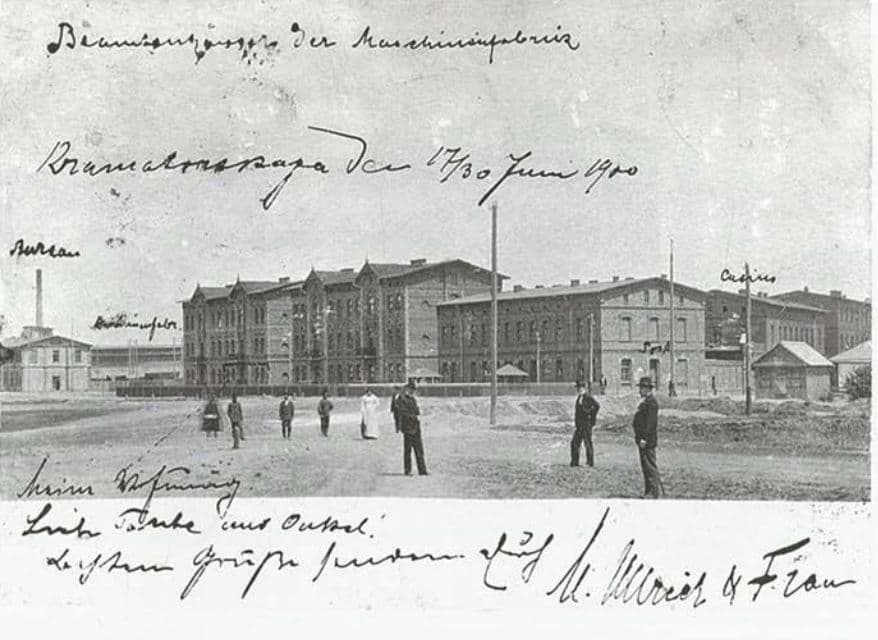 Beamtenhäuser der Maschinenfabrik
Kramatorskaja den 17/30 Juni 1900
Bureau
Casino
Maschinenfabr.
Meine Wohnung.
Liebe Tante und Onkel!
Besten Grüße senden Euch M. Ullrich & Frau